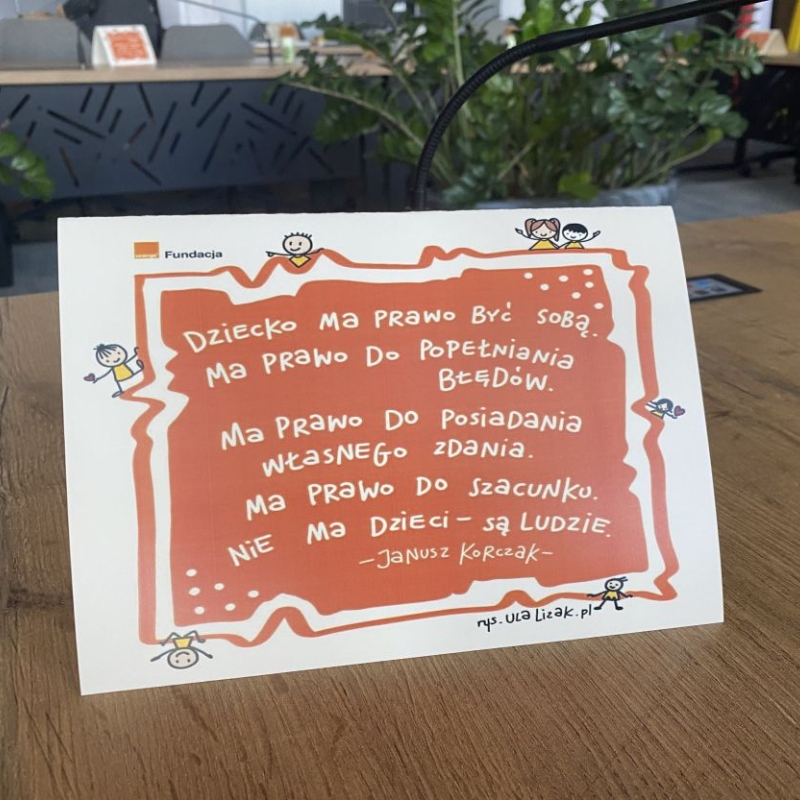 orange Fundacja
Dziecko ma prawo być sobą.
Ma prawo do popełniania
błędów.
Ma prawo do posiadania
własnego zdania.
Ma prawo do szacunku.
Nie ma dzieci – są ludzie.
– Janusz Korczak –
rys. Ula Lizak.pl